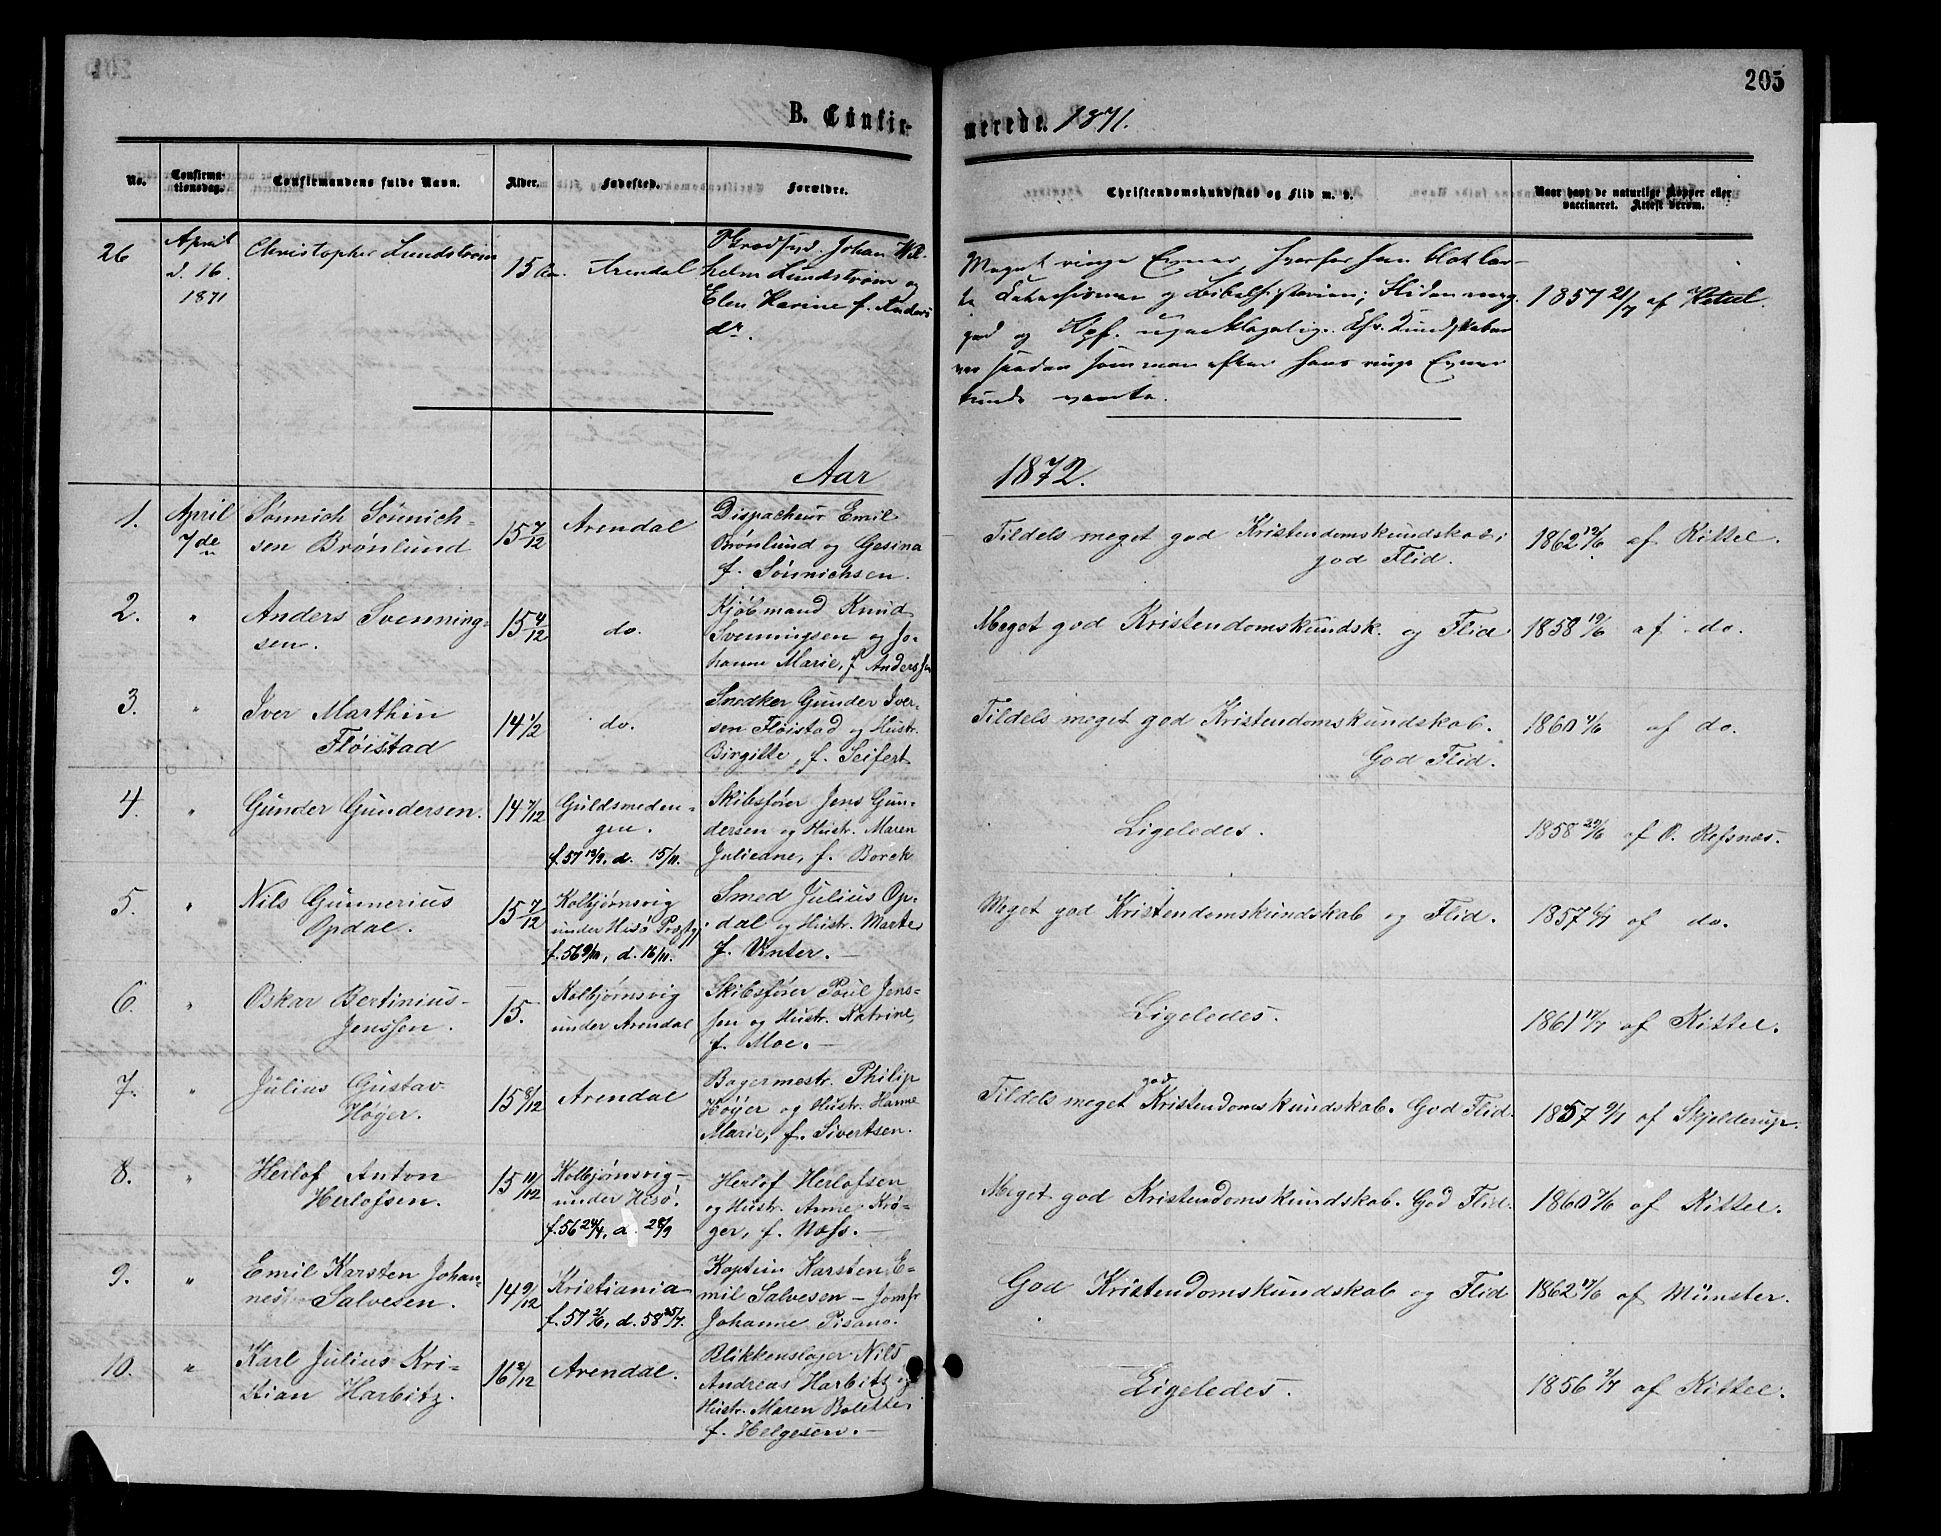 205
B. Confir-
merede. 1871.
No.
Confirma-
tionsdag.
Confirmandens fulde Navn.
Alder.
Fødested.
Forældre.
Christendomskundskab og Flid m. v.
Naar havt de naturlige Kopper eller
vaccineret. Attest derom.
26
April
d. 16.
1871
Christopher Lundstrøm
15 Aar.
Arendal
Johan Wil-
helm Lundstrøm og
Elen Karine f. Anders
dr.
Meget ringe Evner, hvorfor han blot lær-
te Katechismen og Bibelhistorien; Fliden meg.
god og Opf. upaaklagelig. Chr. Kundskaber
var saadan som man efter hans ringe Evner
kunde vænte.
1857 21/7 af Kittel.
Aar
1872.
1.
April
7de
Sønnich Sønnich-
sen Brønlund
15 7/12
Arendal
Dispacheur Emil
Brønlund og Gesina
f. Sønnichsen.
Tildels meget god Kristendomskundskab;
god Flid.
1862 12/6 af Kittel.
2.
"
Anders Svenning-
sen.
15 4/12
do.
Kjøbmand Knud
Svenningsen og Jo-
hanne Marie, f. Anderssen
Meget god Kristendomskundsk. og Flid
1858 19/6 af do.
3.
"
Iver Marthin
Fløistad
14 1/2
do.
Snedker Gunder Iver-
sen Fløistad og Hustr.
Birgitte, f. Seifert
Tildels meget god Kristendomskundskab.
God Flid.
1860 /6 af do.
4.
"
Gunder Gundersen.
14 7/12
Guldsmeden-
gen.
f. 57 13/9, d. 15/11.
Skibsfører Jens Gun-
dersen og Hustr. Maren
Julieane, f. Borck
Ligeledes.
1858 29/6 af O. Refsnæs.
5.
"
Nils Gunnerius
Opdal.
15 7/12
Kolbjørnsvig
under Hisø Præstgj.
f. 56 9/10, d. 16/11.
Smed Julius Op-
dal og Hustr. Marte
f. Vinter. —
Meget god Kristendomskundskab og Flid.
1857 /7 af do.
6.
"
Oskar Bertinius
Jenssen.
15.
Kolbjørnsvig
under Arendal
Skibsfører Poul Jens-
sen og Hustr. Katrine,
f. Moe. —
Ligeledes.
1861 17/7 af Kittel.
7.
"
Julius Gustav
Høyer.
15 8/12
Arendal
Bagermestr. Philip
Høyer og Hustr. Hanne
Marie, f. Sivertsen.
Tildels meget god Kristendomskundskab. God Flid.
1857 9/7 af Skjelderup.
8.
"
Herlof Anton
Herlofsen.
15 11/12
Kolbjørnsvig,
under Hisø.
f. 56 24/4, d. 28/9
Herlof Herlofsen
og Hustr. Anne Krø-
ger, f. Næss. —
Meget god Kristendomskundskab. God Flid.
1860 /6 af Kittel.
9.
"
Emil Karsten Johan-
nes Salvesen.
14 9/12
Kristiania
f. 57 2/6, d. 58 25/7.
Kaptein Karsten E-
mil Salvesen — Jomfr
Johanne Pisano.
God Kristendomskundskab og Flid
1862 17/6 af Münster.
10.
"
Karl Julius Kri-
stian Harbitz.
16 2/12
Arendal.
Blikkenslager Nils
Andreas Harbitz og
Hustr. Maren Bolette,
f. Helgesen. —
Ligeledes.
1856 /7 af Kittel.